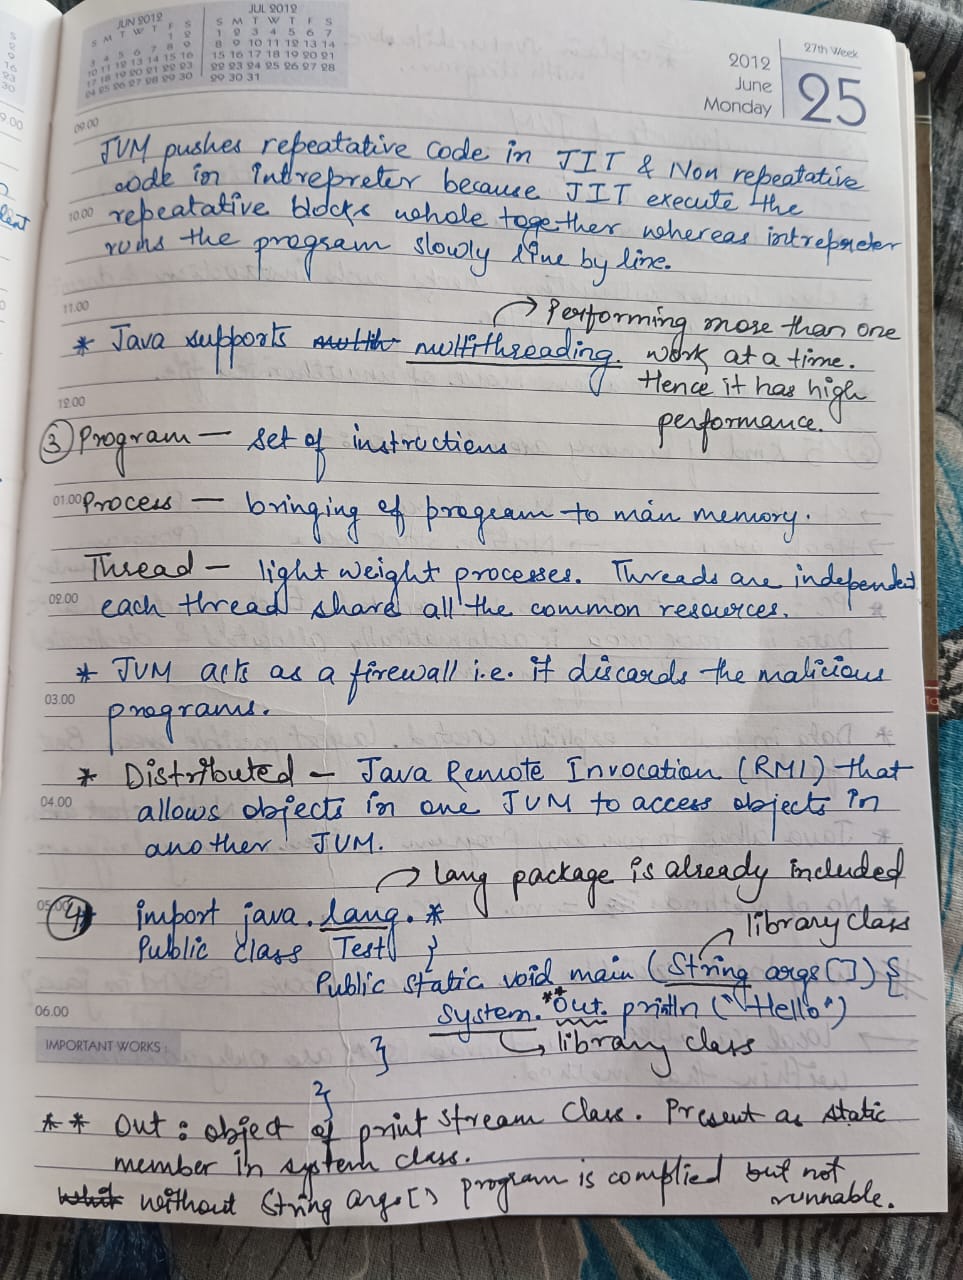 JUN 2012
S M T W T F S
1 2
3 4 5 6 7 8 9
10 11 12 13 14 15 16
17 18 19 20 21 22 23
24 25 26 27 28 29 30
JUL 2012
S M T W T F S
1 2 3 4 5 6 7
8 9 10 11 12 13 14
15 16 17 18 19 20 21
22 23 24 25 26 27 28
29 30 31
27th Week
2012
June
Monday
25
09.00
JVM pushes repeatative code in JIT & Non repeatative
code in intrepreter because JIT execute the
10.00 repeatative blocks whole together whereas intrepreter
runs the program slowly line by line.
11.00
→ Performing more than one
* Java supports multithreading. work at a time.
Hence it has high
12.00
performance.
③ Program — set of instructions
01.00 Process — bringing of program to main memory.
Thread — light weight processes. Threads are independent
02.00 each thread share all the common resources.
* JVM acts as a firewall i.e. it discards the malicious
03.00
programs.
* Distributed — Java Remote Invocation (RMI) that
04.00 allows objects in one JVM to access objects in
another JVM.
→ lang package is already included
05.00 ④ import java.lang.*
→ library class
Public class Test {
Public static void main (String args[]) {
06.00
System.**out. println ("Hello")
IMPORTANT WORKS
→ library class
}
}
** Out : object of print stream Class. Present as static
member in system class.
without String args[] program is complied but not
runnable.